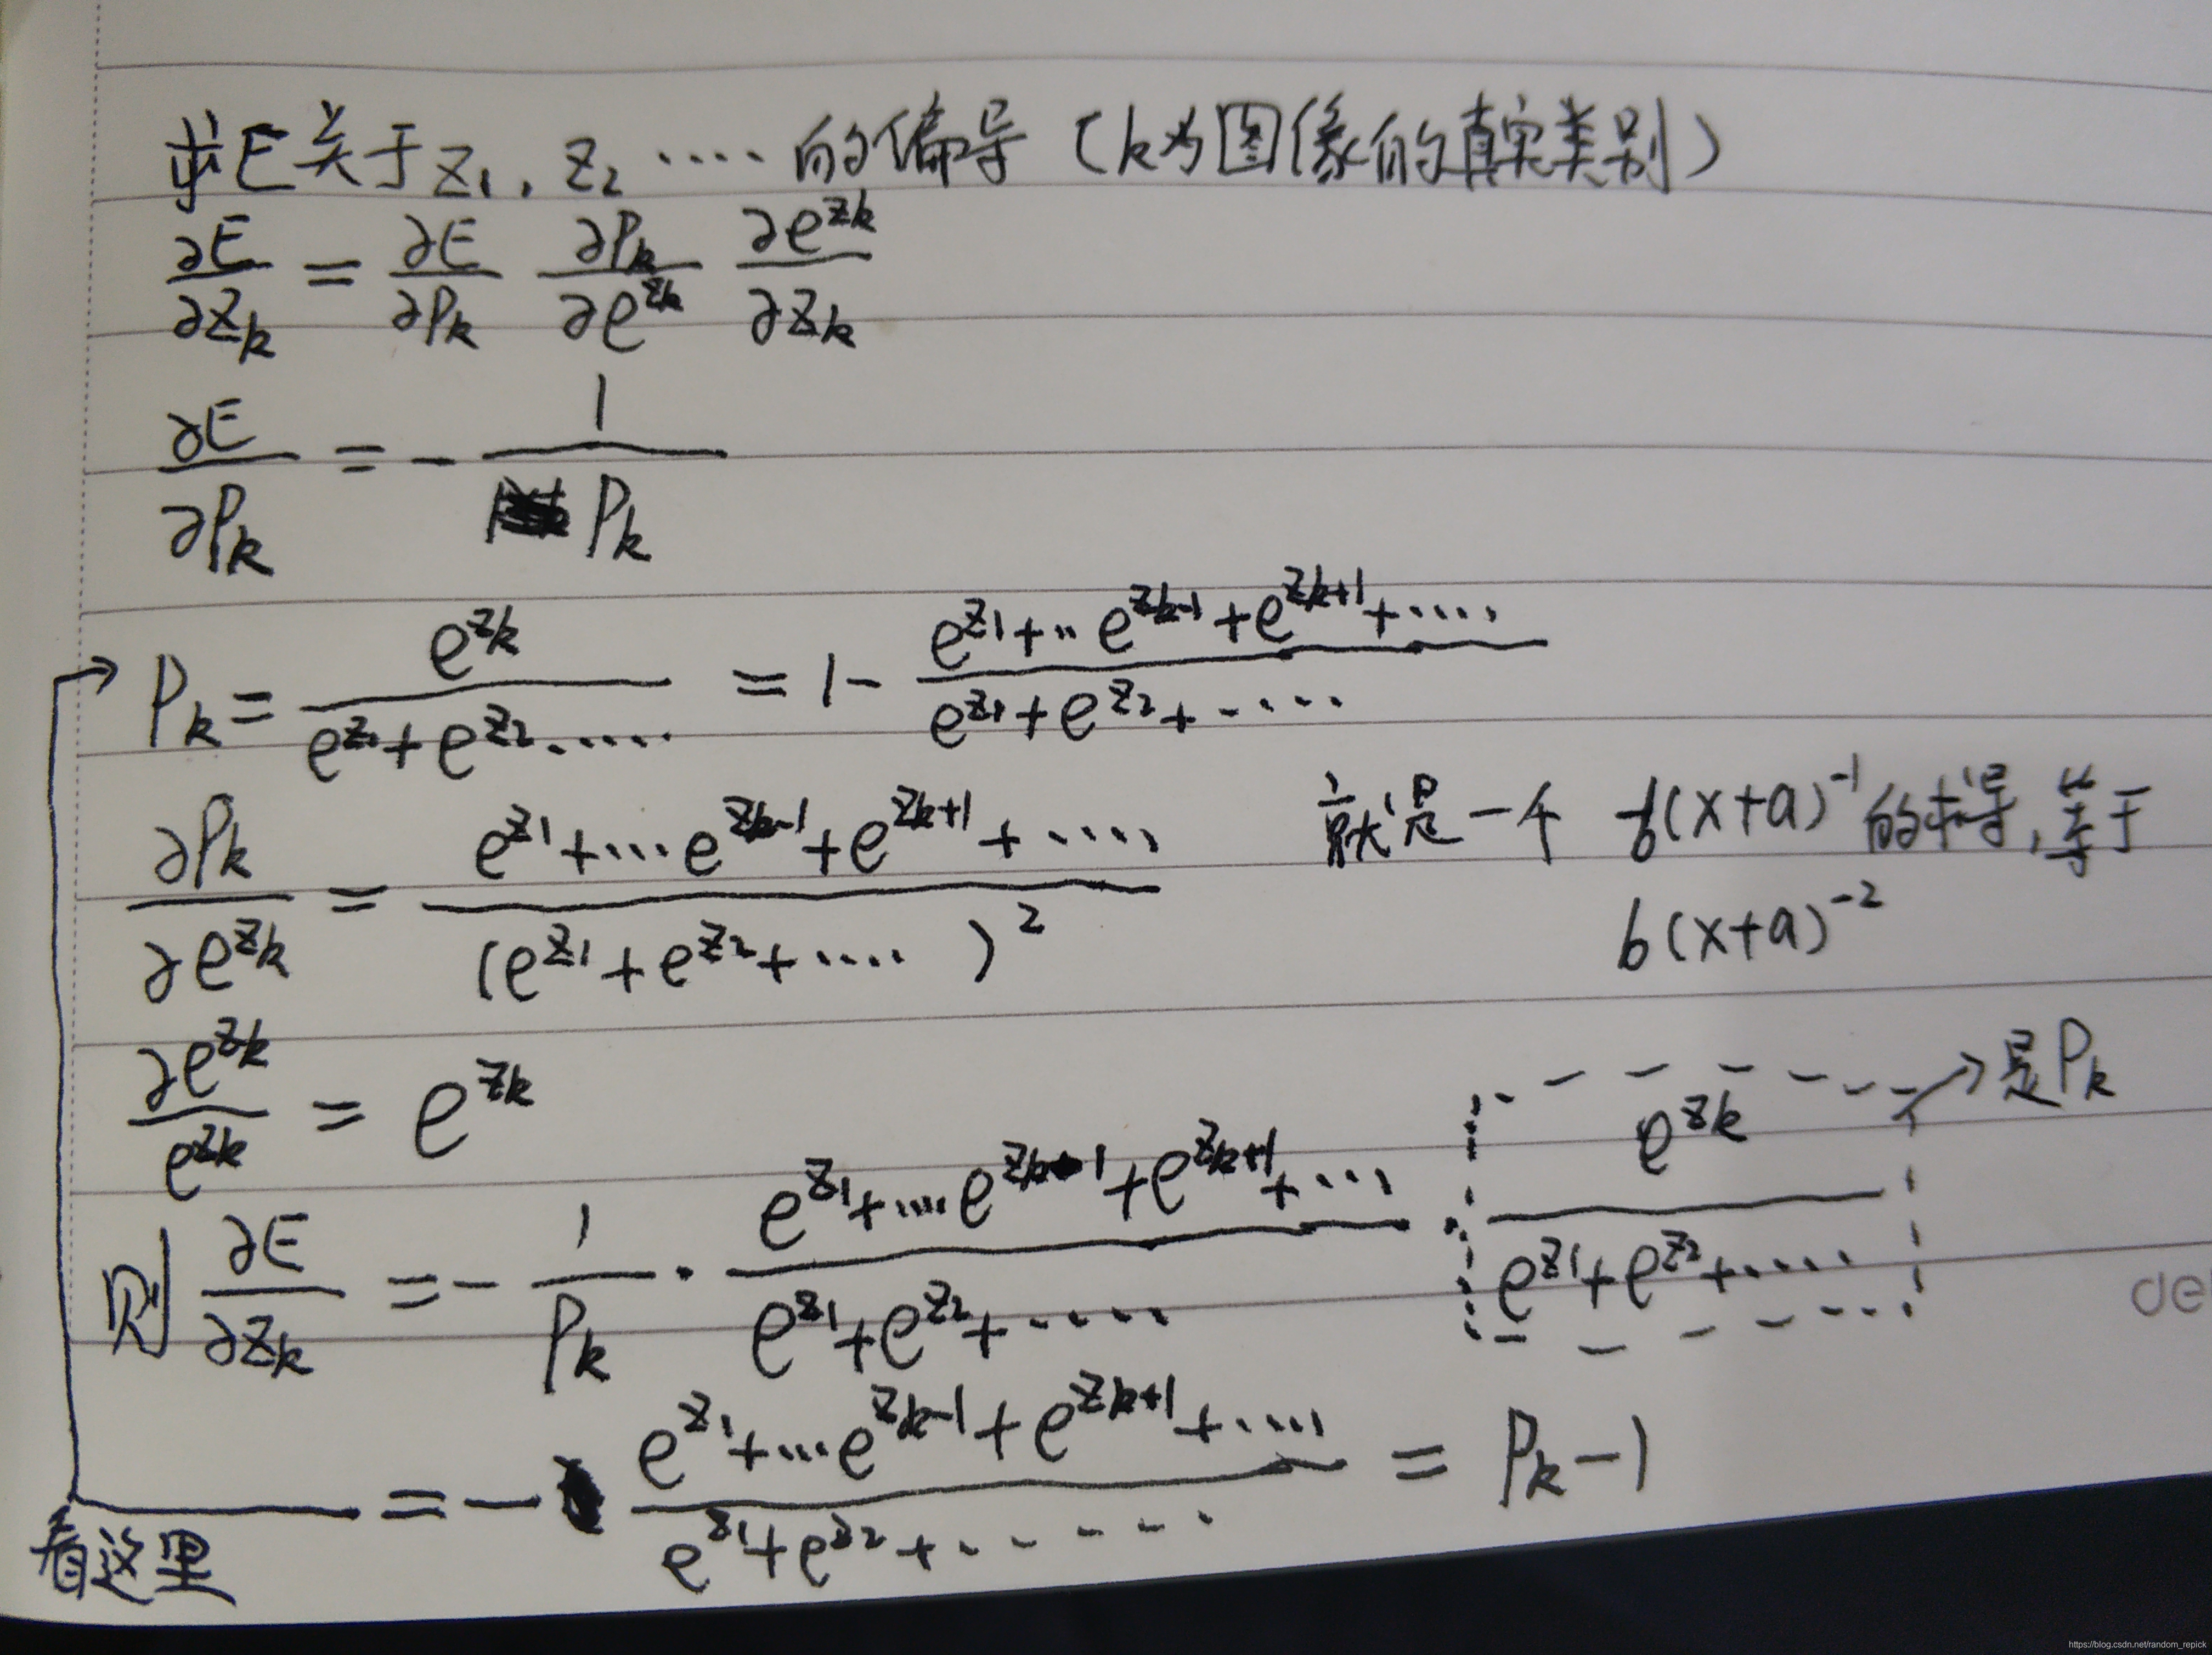 求E关于z₁, z₂ ···· 的偏导 (k为图像的真实类别)
∂E/∂z_k = ∂E/∂P_k ∂P_k/∂e^{z_k} ∂e^{z_k}/∂z_k
∂E/∂P_k = - 1/P_k
P_k = e^{z_k}/(e^{z_1}+e^{z_2}·····) = 1- (e^{z_1}+··e^{z_{k-1}}+e^{z_{k+1}}+····)/(e^{z_1}+e^{z_2}+·····)
∂P_k/∂e^{z_k} = (e^{z_1}+···e^{z_{k-1}}+e^{z_{k+1}}+····)/(e^{z_1}+e^{z_2}+····)² 就是一个 -b(x+a)^{-1}的求导,等于
b(x+a)^{-2}
∂e^{z_k}/e^{z_k} = e^{z_k}
则 ∂E/∂z_k = - 1/P_k · (e^{z_1}+····e^{z_{k-1}}+e^{z_{k+1}}+···)/(e^{z_1}+e^{z_2}+·····) · e^{z_k}/(e^{z_1}+e^{z_2}+·····) → 是P_k
= - (e^{z_1}+···e^{z_{k-1}}+e^{z_{k+1}}+····)/(e^{z_1}+e^{z_2}+······) = P_k-1
看这里
de
https://blog.csdn.net/random_repick